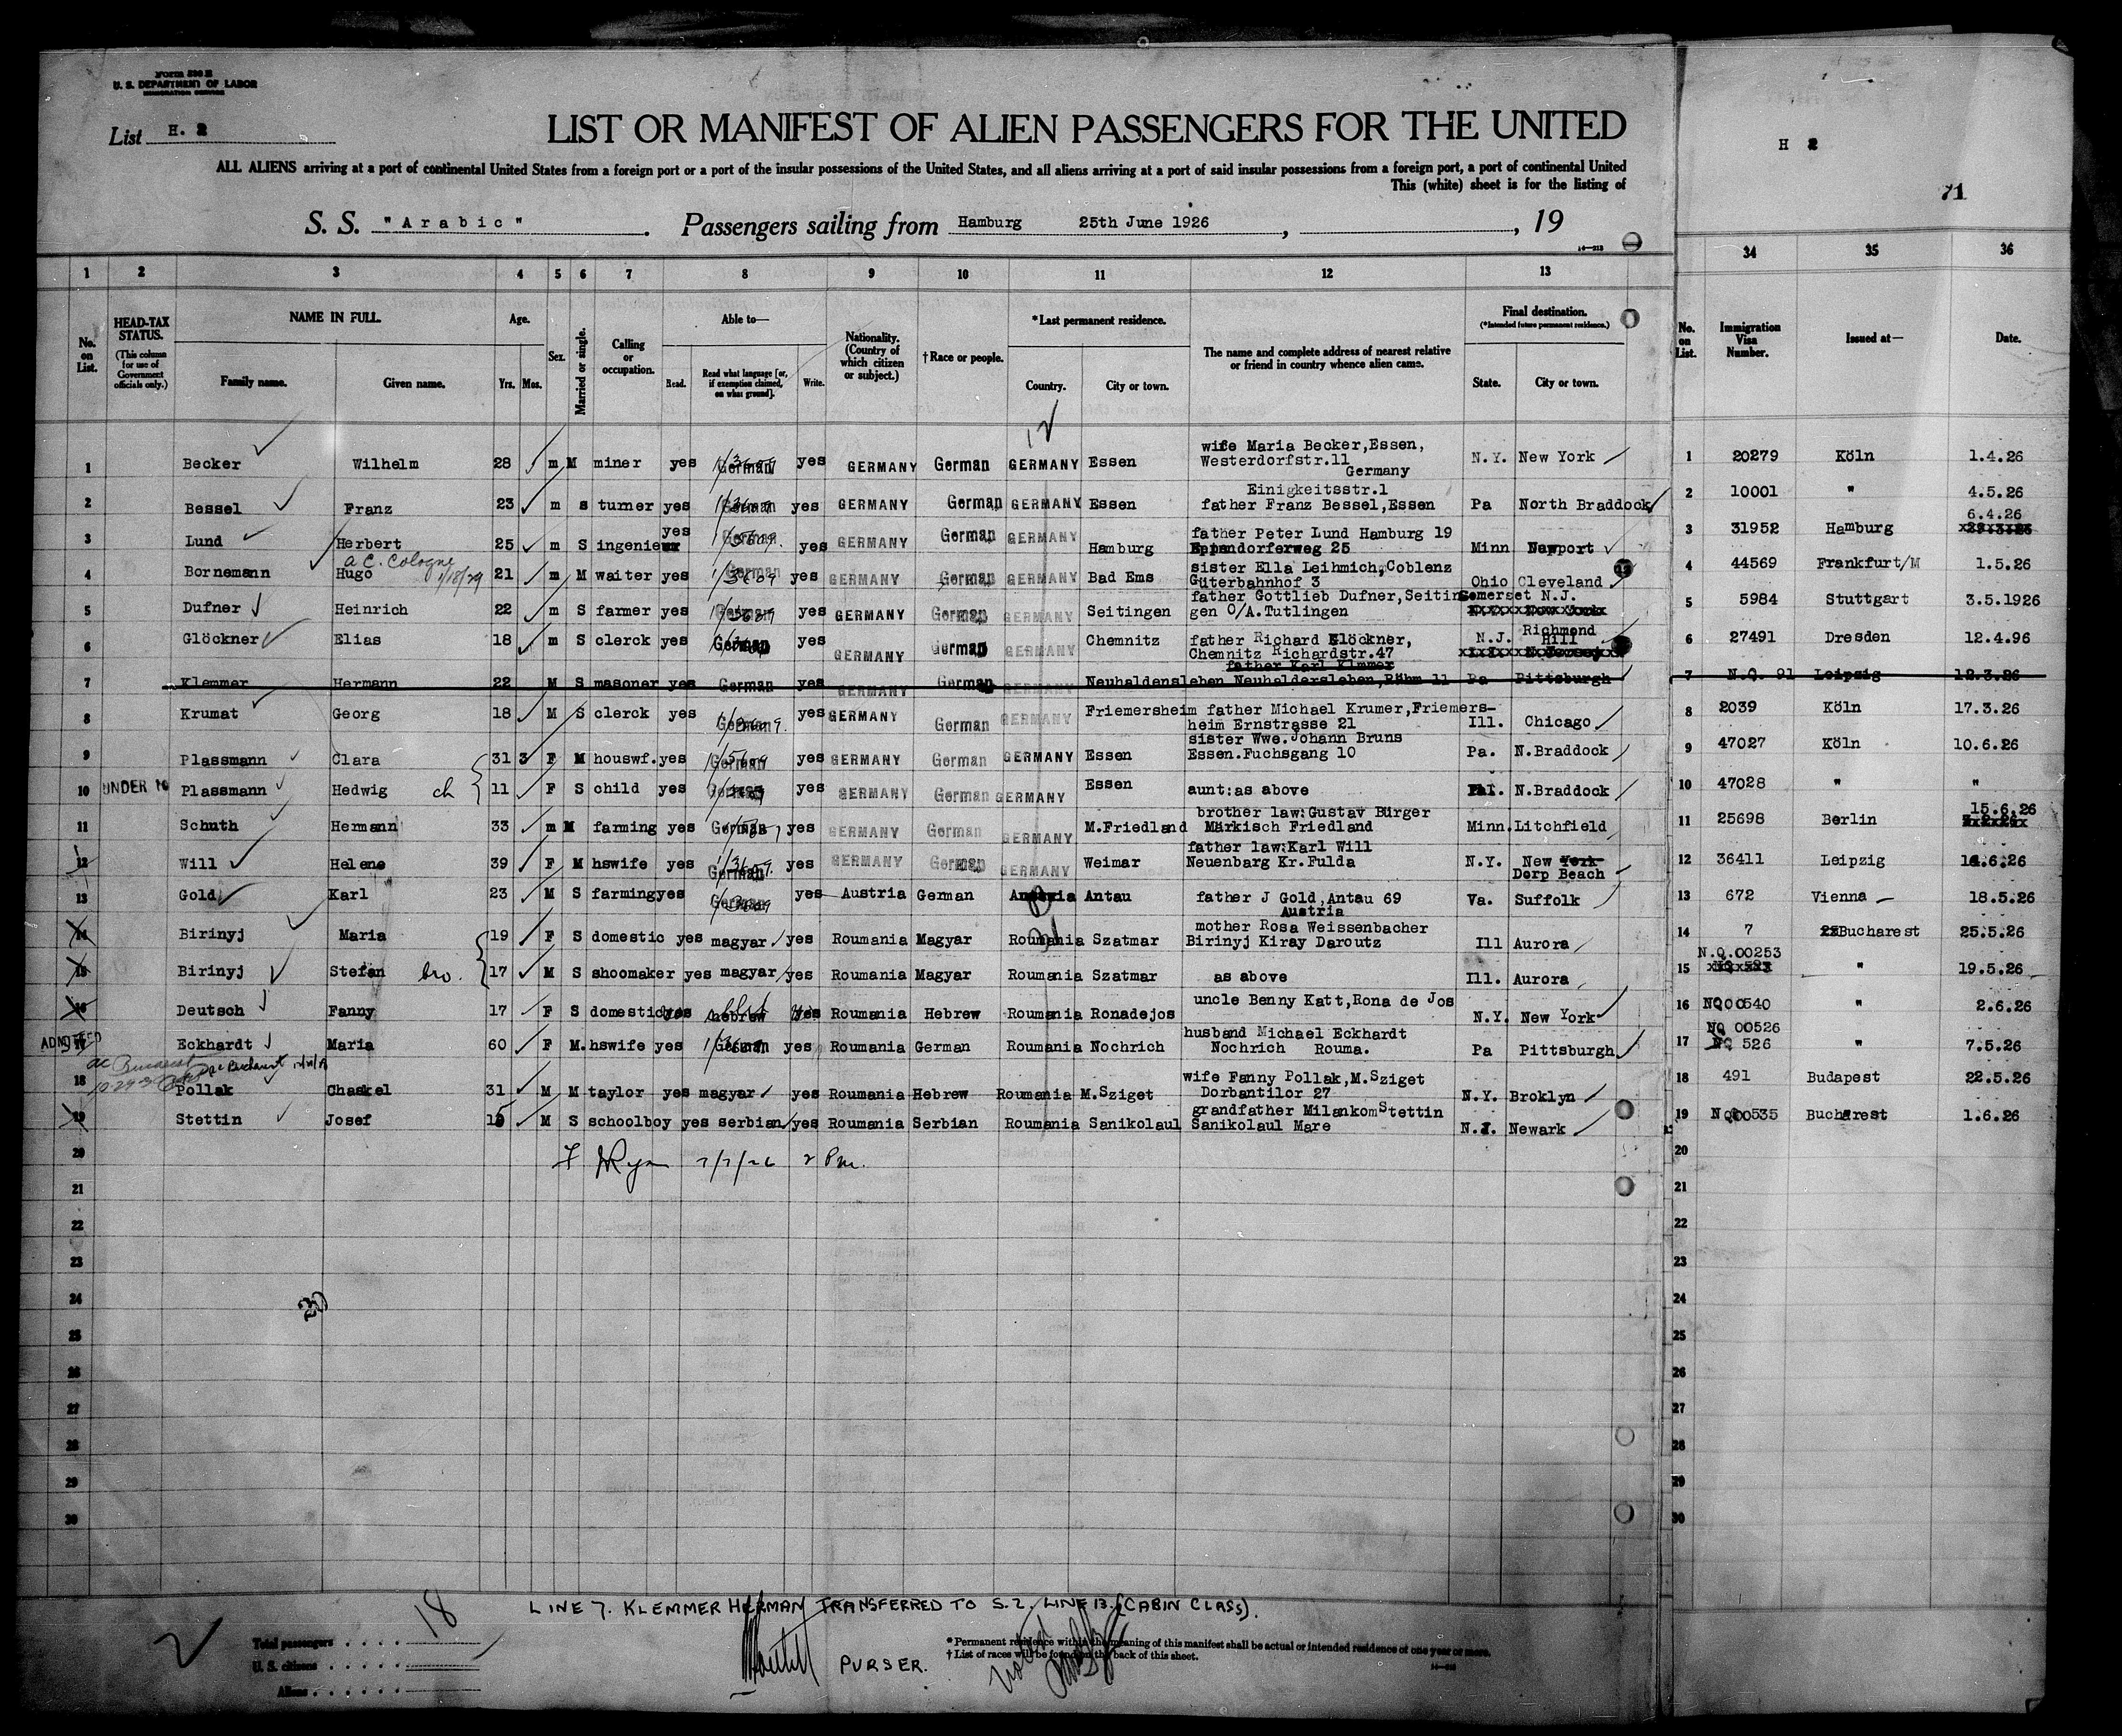 Form 500 B
U. S. DEPARTMENT OF LABOR
IMMIGRATION SERVICE
List H. 2
LIST OR MANIFEST OF ALIEN PASSENGERS FOR THE UNITED
H 2
71
ALL ALIENS arriving at a port of continental United States from a foreign port or a port of the insular possessions of the United States, and all aliens arriving at a port of said insular possessions from a foreign port, a port of continental United
This (white) sheet is for the listing of
S. S. "Arabic". Passengers sailing from Hamburg 25th June 1926, , 19
1 2 3 4 5 6 7 8 9 10 11 12 13 34 35 36
No. on List.
HEAD-TAX STATUS.
(This column for use of Government officials only.)
NAME IN FULL.
Family name. Given name.
Age.
Yrs. Mos.
Sex.
Married or single.
Calling or occupation.
Able to—
Read. Read what language [or, if exemption claimed, on what ground]. Write.
Nationality. (Country of which citizen or subject.)
†Race or people.
*Last permanent residence.
Country. City or town.
The name and complete address of nearest relative or friend in country whence alien came.
Final destination.
(*Intended future permanent residence.)
State. City or town.
No. on List.
Immigration Visa Number.
Issued at—
Date.
wife Maria Becker,Essen,
1 Becker Wilhelm 28 m M miner yes German yes GERMANY German GERMANY Essen Westerdorfstr.11 N.Y. New York 1 20279 Köln 1.4.26
Germany
Einigkeitsstr.1
2 Bessel Franz 23 m s turner yes German yes GERMANY German GERMANY Essen father Franz Bessel,Essen Pa North Braddock 2 10001 " 4.5.26
6.4.26
3 Lund Herbert 25 m S ingenieur yes German yes GERMANY German GERMANY Hamburg father Peter Lund Hamburg 19 Minn Newport 3 31952 Hamburg
Eppendorferweg 25
a C. Cologne 1/18/29
sister Ella Leihmich,Coblenz
4 Bornemann Hugo 21 m M waiter yes German yes GERMANY German GERMANY Bad Ems Güterbahnhof 3 Ohio Cleveland 4 44569 Frankfurt/M 1.5.26
father Gottlieb Dufner,Seitin Somerset N.J.
5 Dufner Heinrich 22 m S farmer yes German yes GERMANY German GERMANY Seitingen gen O/A.Tutlingen 5 5984 Stuttgart 3.5.1926
6 Glöckner Elias 18 m S clerck yes German yes GERMANY German GERMANY Chemnitz father Richard Glöckner, N.J. Richmond Hill 6 27491 Dresden 12.4.96
Chemnitz Richardstr.47
father Karl Klmmer
7 Klemmer Hermann 22 M S masoner yes German yes GERMANY German Neuhaldensleben Neuhaldersleben,Röhm 11 Pa Pittsburgh 7 N.Q. 91 Leipzig 12.3.26
8 Krumat Georg 18 M S clerck yes German yes GERMANY German GERMANY Friemersheim father Michael Krumer,Friemers-
heim Ernstrasse 21 Ill. Chicago 8 2039 Köln 17.3.26
sister Wwe.Johann Bruns
9 Plassmann Clara 31 3 F M houswf. yes German yes GERMANY German GERMANY Essen Essen.Fuchsgang 10 Pa. N.Braddock 9 47027 Köln 10.6.26
10 UNDER 16 Plassmann Hedwig ch 11 F S child yes German yes GERMANY German GERMANY Essen aunt:as above N.Braddock 10 47028 " "
brother law:Gustav Bürger 15.6.26
11 Schuth Hermann 33 m M farming yes German yes GERMANY German GERMANY M.Friedland Märkisch Friedland Minn. Litchfield 11 25698 Berlin
father law:Karl Will
12 Will Helene 39 F M hswife yes German yes GERMANY German GERMANY Weimar Neuenbarg Kr.Fulda N.Y. New York 12 36411 Leipzig 14.6.26
Dorp Beach
13 Gold Karl 23 M S farming yes German yes Austria German Austria Antau father J Gold,Antau 69 Va. Suffolk 13 672 Vienna 18.5.26
Austria
mother Rosa Weissenbacher
14 Birinyj Maria 19 F S domestic yes magyar yes Roumania Magyar Roumania Szatmar Birinyj Kiray Daroutz Ill Aurora 14 7 Bucharest 25.5.26
N.Q.00253
15 Birinyj Stefan bro. 17 M S shoomaker yes magyar yes Roumania Magyar Roumania Szatmar as above Ill. Aurora 15 " 19.5.26
16 Deutsch Fanny 17 F S domestic yes hebrew yes Roumania Hebrew Roumania Ronadejos uncle Benny Katt,Rona de Jos N.Y. New York 16 NQ00540 " 2.6.26
ADMITTED
17 Eckhardt Maria 60 F M. hswife yes German yes Roumania German Roumania Nochrich husband Michael Eckhardt Pa Pittsburgh 17 NQ 00526 " 7.5.26
Nochrich Rouma. NQ 526
wife Fanny Pollak,M.Sziget
18 Pollak Chaskel 31 M M taylor yes magyar yes Roumania Hebrew Roumania M.Sziget Dorbantilor 27 N.Y. Broklyn 18 491 Budapest 22.5.26
grandfather Milankom Stettin
19 Stettin Josef 15 M S schoolboy yes serbian yes Roumania Serbian Roumania Sanikolaul Sanikolaul Mare N.J. Newark 19 NQ00535 Bucharest 1.6.26
20 7/7/26 2 Pm. 20
21 21
22 22
23 23
24 24
25 25
26 26
27 27
28 28
29 29
30 30
LINE 7. KLEMMER HERMAN TRANSFERRED TO S.2. LINE 13. (CABIN CLASS).
18
Total passengers . . . .
U. S. citizens . . . . .
Aliens . . . . . .
PURSER.
*Permanent residence within the meaning of this manifest shall be actual or intended residence of one year or more.
†List of races will be found on the back of this sheet.